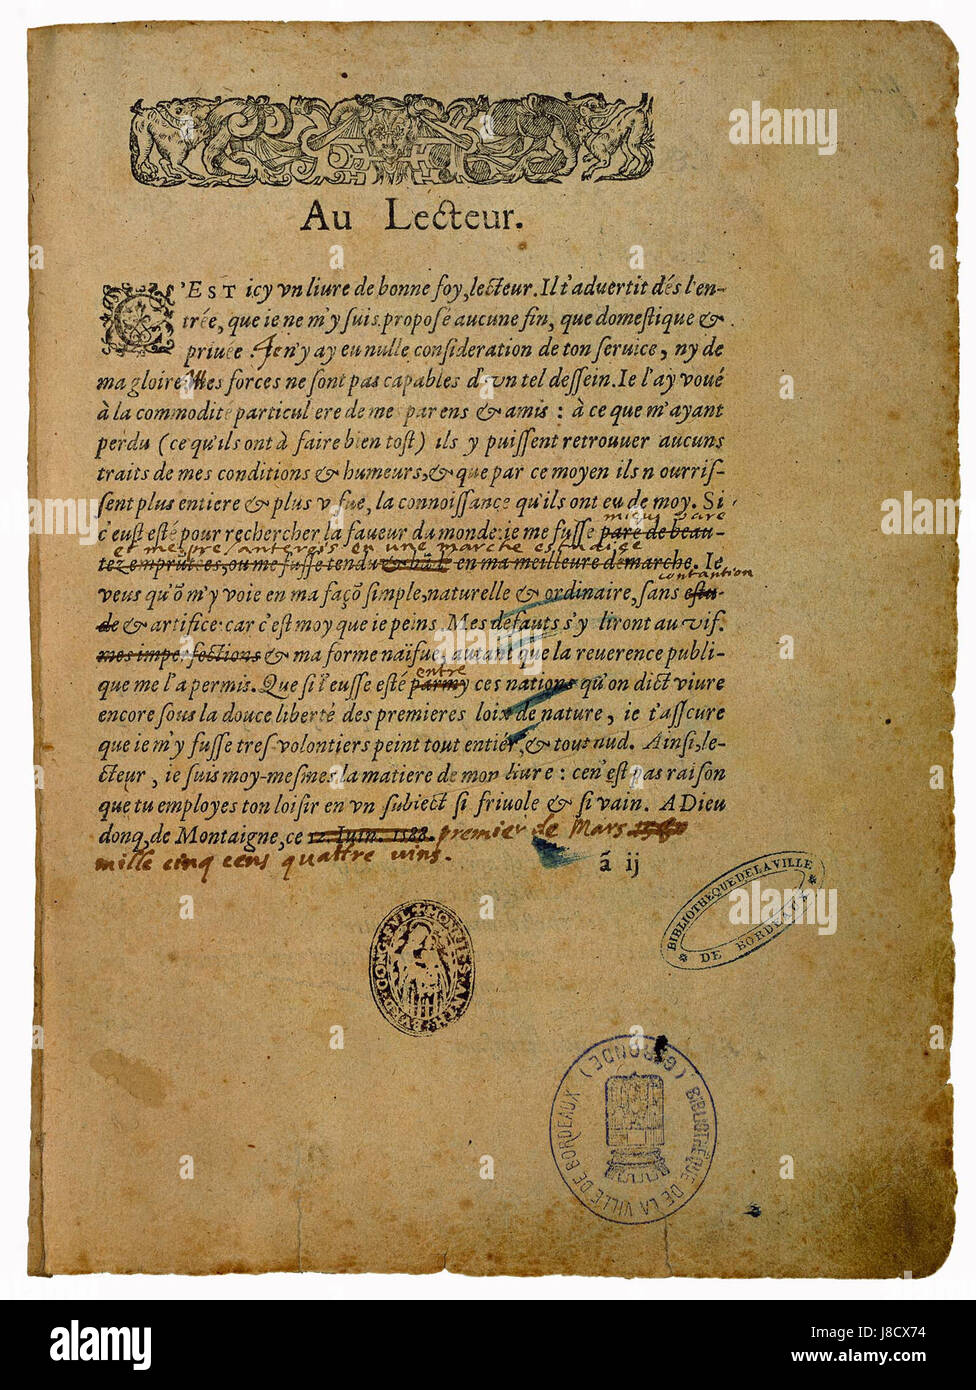 Au Lecteur.
C'EST icy vn liure de bonne foy, lecteur. Il t'aduertit dés l'en-
trée, que ie ne m'y suis proposé aucune fin, que domestique &
priuée. Ie n'y ay eu nulle consideration de ton seruice, ny de
ma gloire. Mes forces ne sont pas capables d'vn tel dessein. Ie l'ay voué
à la commodité particuliere de mes parens & amis : à ce que m'ayant
perdu (ce qu'ils ont à faire bien tost) ils y puissent retrouuer aucuns
traits de mes conditions & humeurs, & que par ce moyen ils nourris-
sent plus entiere & plus vifue, la connoissance qu'ils ont eu de moy. Si
mieux paré
c'eust esté pour rechercher la faueur du monde: ie me fusse paré de beau-
et me presanterois en une marche estudiee
tez empruntées, ou me fusse tendu & bādé en ma meilleure demarche. Ie
contantion
veus qu'ō m'y voie en ma façō simple, naturelle & ordinaire, sans estu-
de & artifice: car c'est moy que ie peins. Mes defauts s'y liront au vif.
mes imperfections & ma forme naïfue, autant que la reuerence publi-
entre
que me l'a permis. Que si i'eusse esté parmy ces nations qu'on dict viure
encore sous la douce liberté des premieres loix de nature, ie t'asseure
que ie m'y fusse tres-volontiers peint tout entier, & tout nud. Ainsi, le-
cteur, ie suis moy-mesmes la matiere de mon liure : ce n'est pas raison
que tu employes ton loisir en vn subiect si friuole & si vain. A Dieu
donq, de Montaigne, ce 12. Iuin. 1588. premier de Mars
mille cinq cens quattre vins.
ã ij
BIBLIOTHEQUE DE LA VILLE
DE BORDEAUX
BIBLIOTHÈQUE DE LA VILLE DE BORDEAUX (GIRONDE)
alamy
Image ID: J8CX74
www.alamy.com